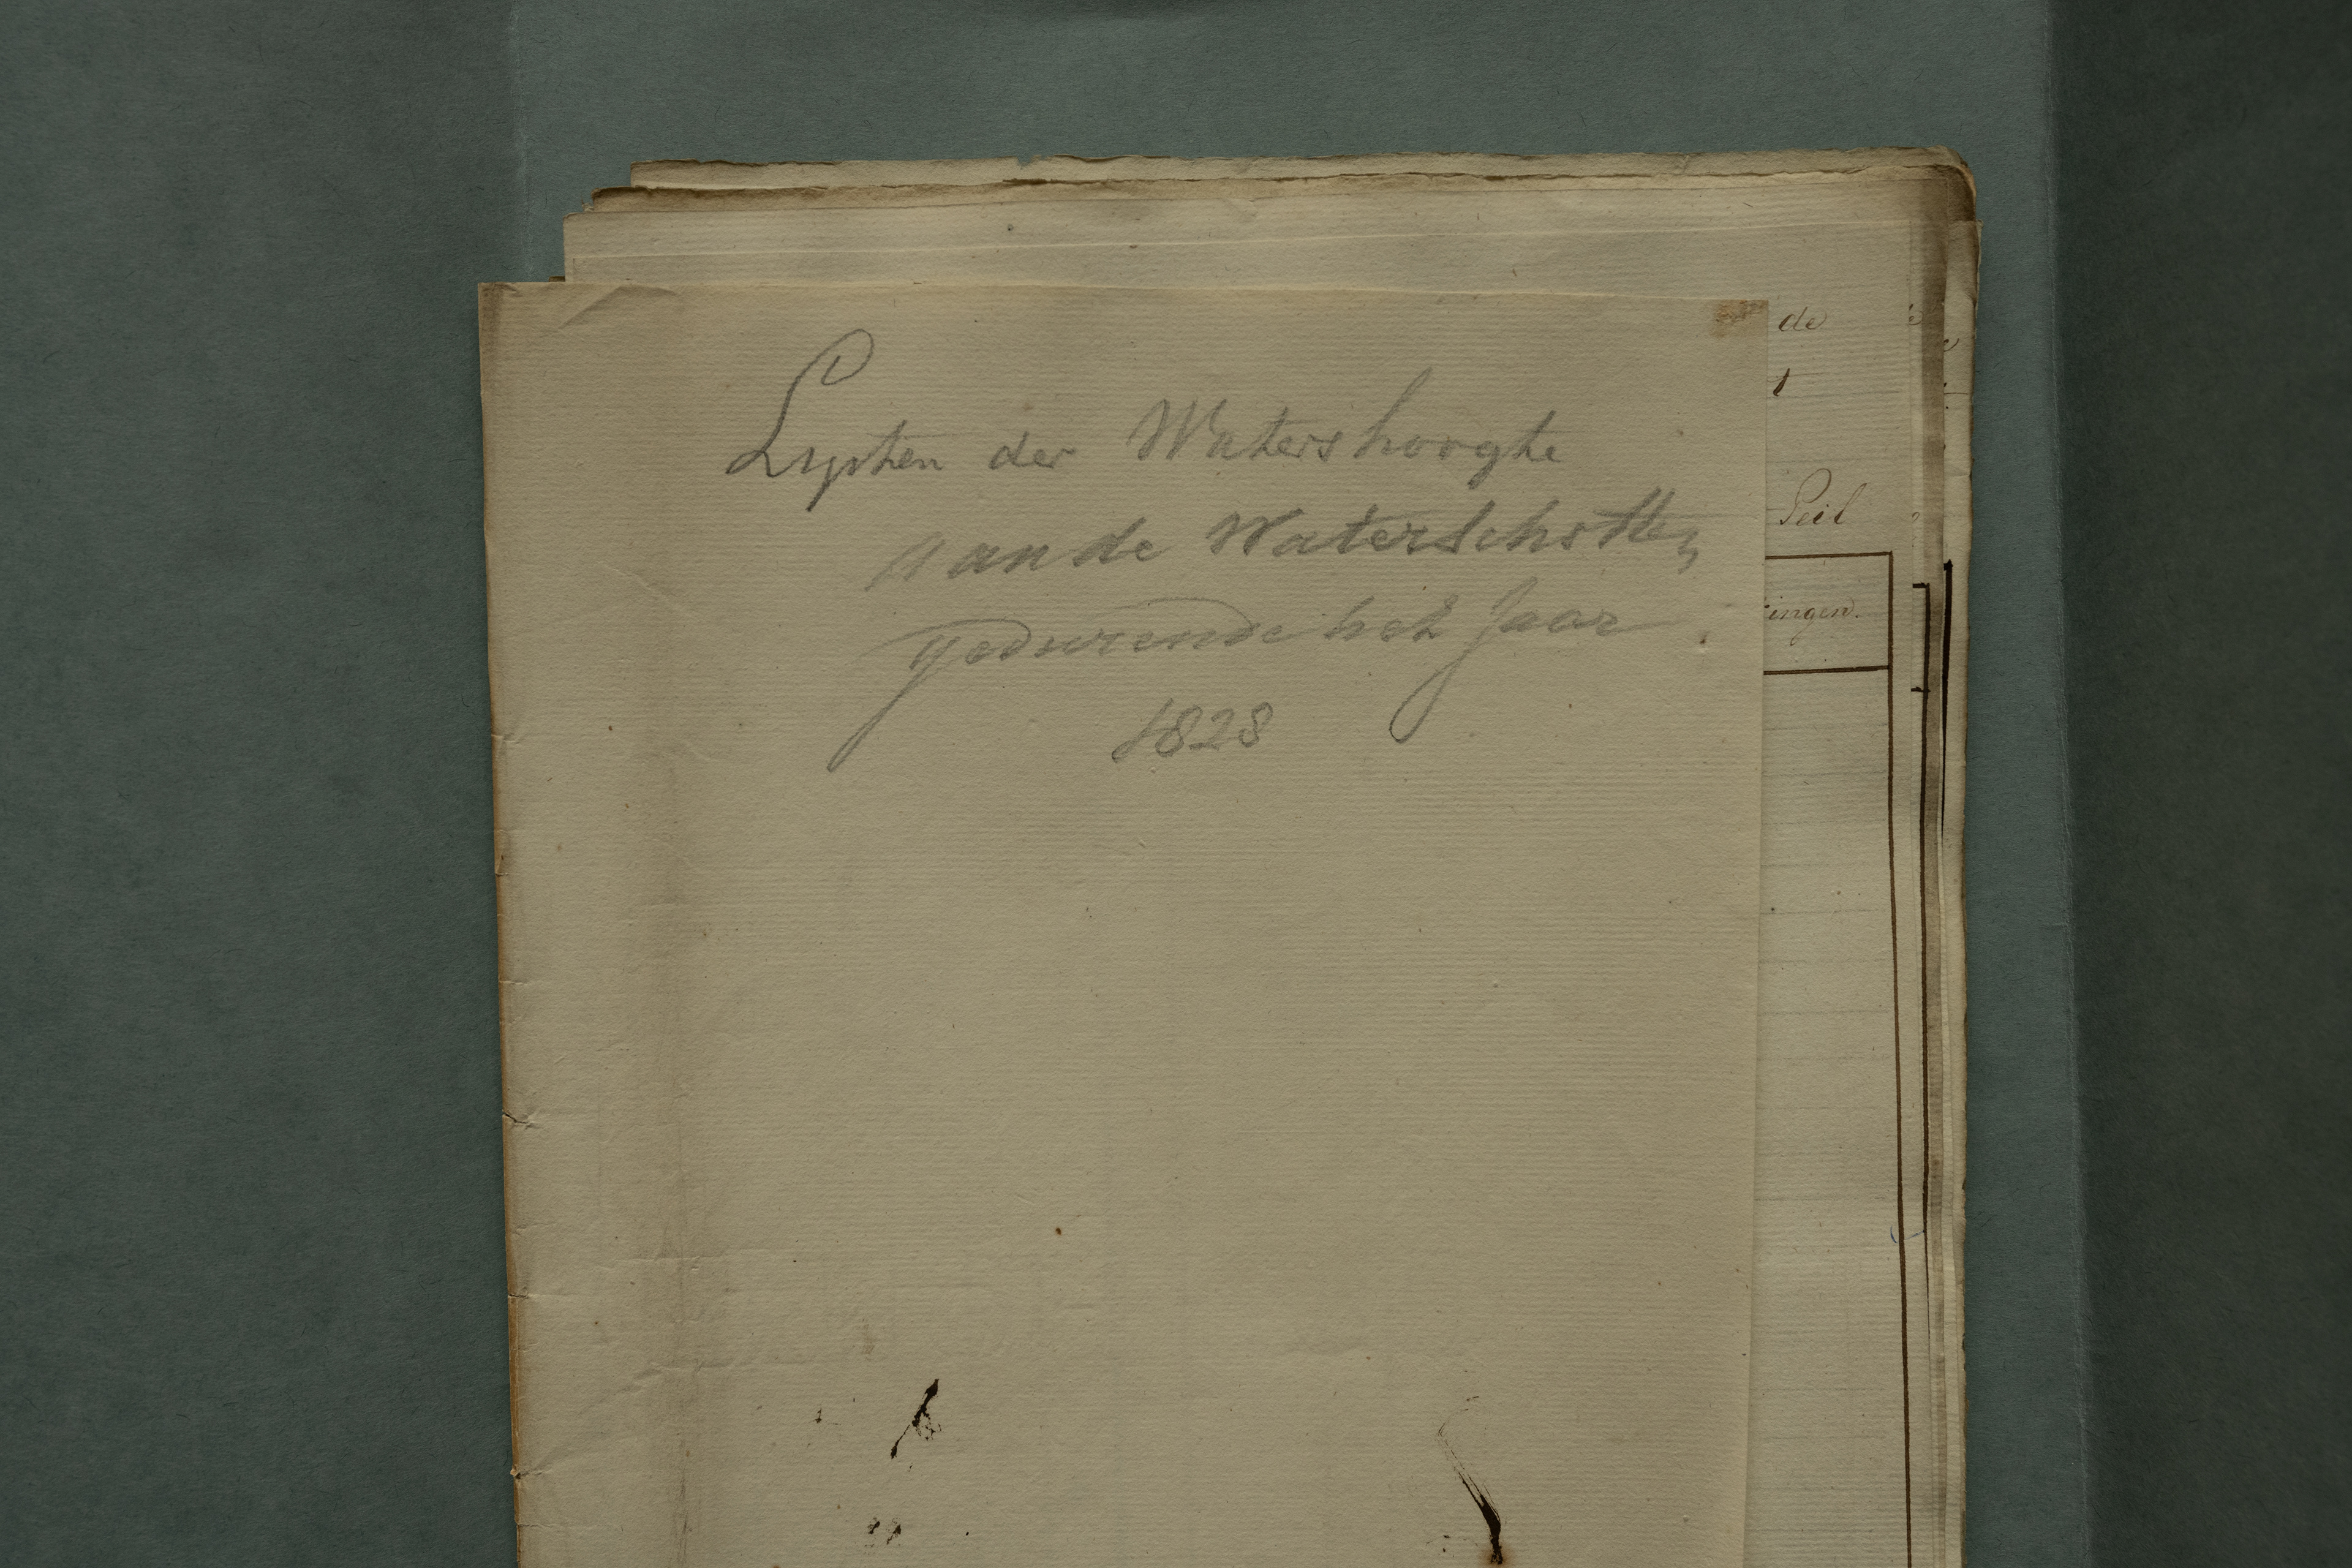 Lysten der Waters hooghe
aan de Waterschotten
gedurende het Jaar
1828
de
t
Peil
ingen.